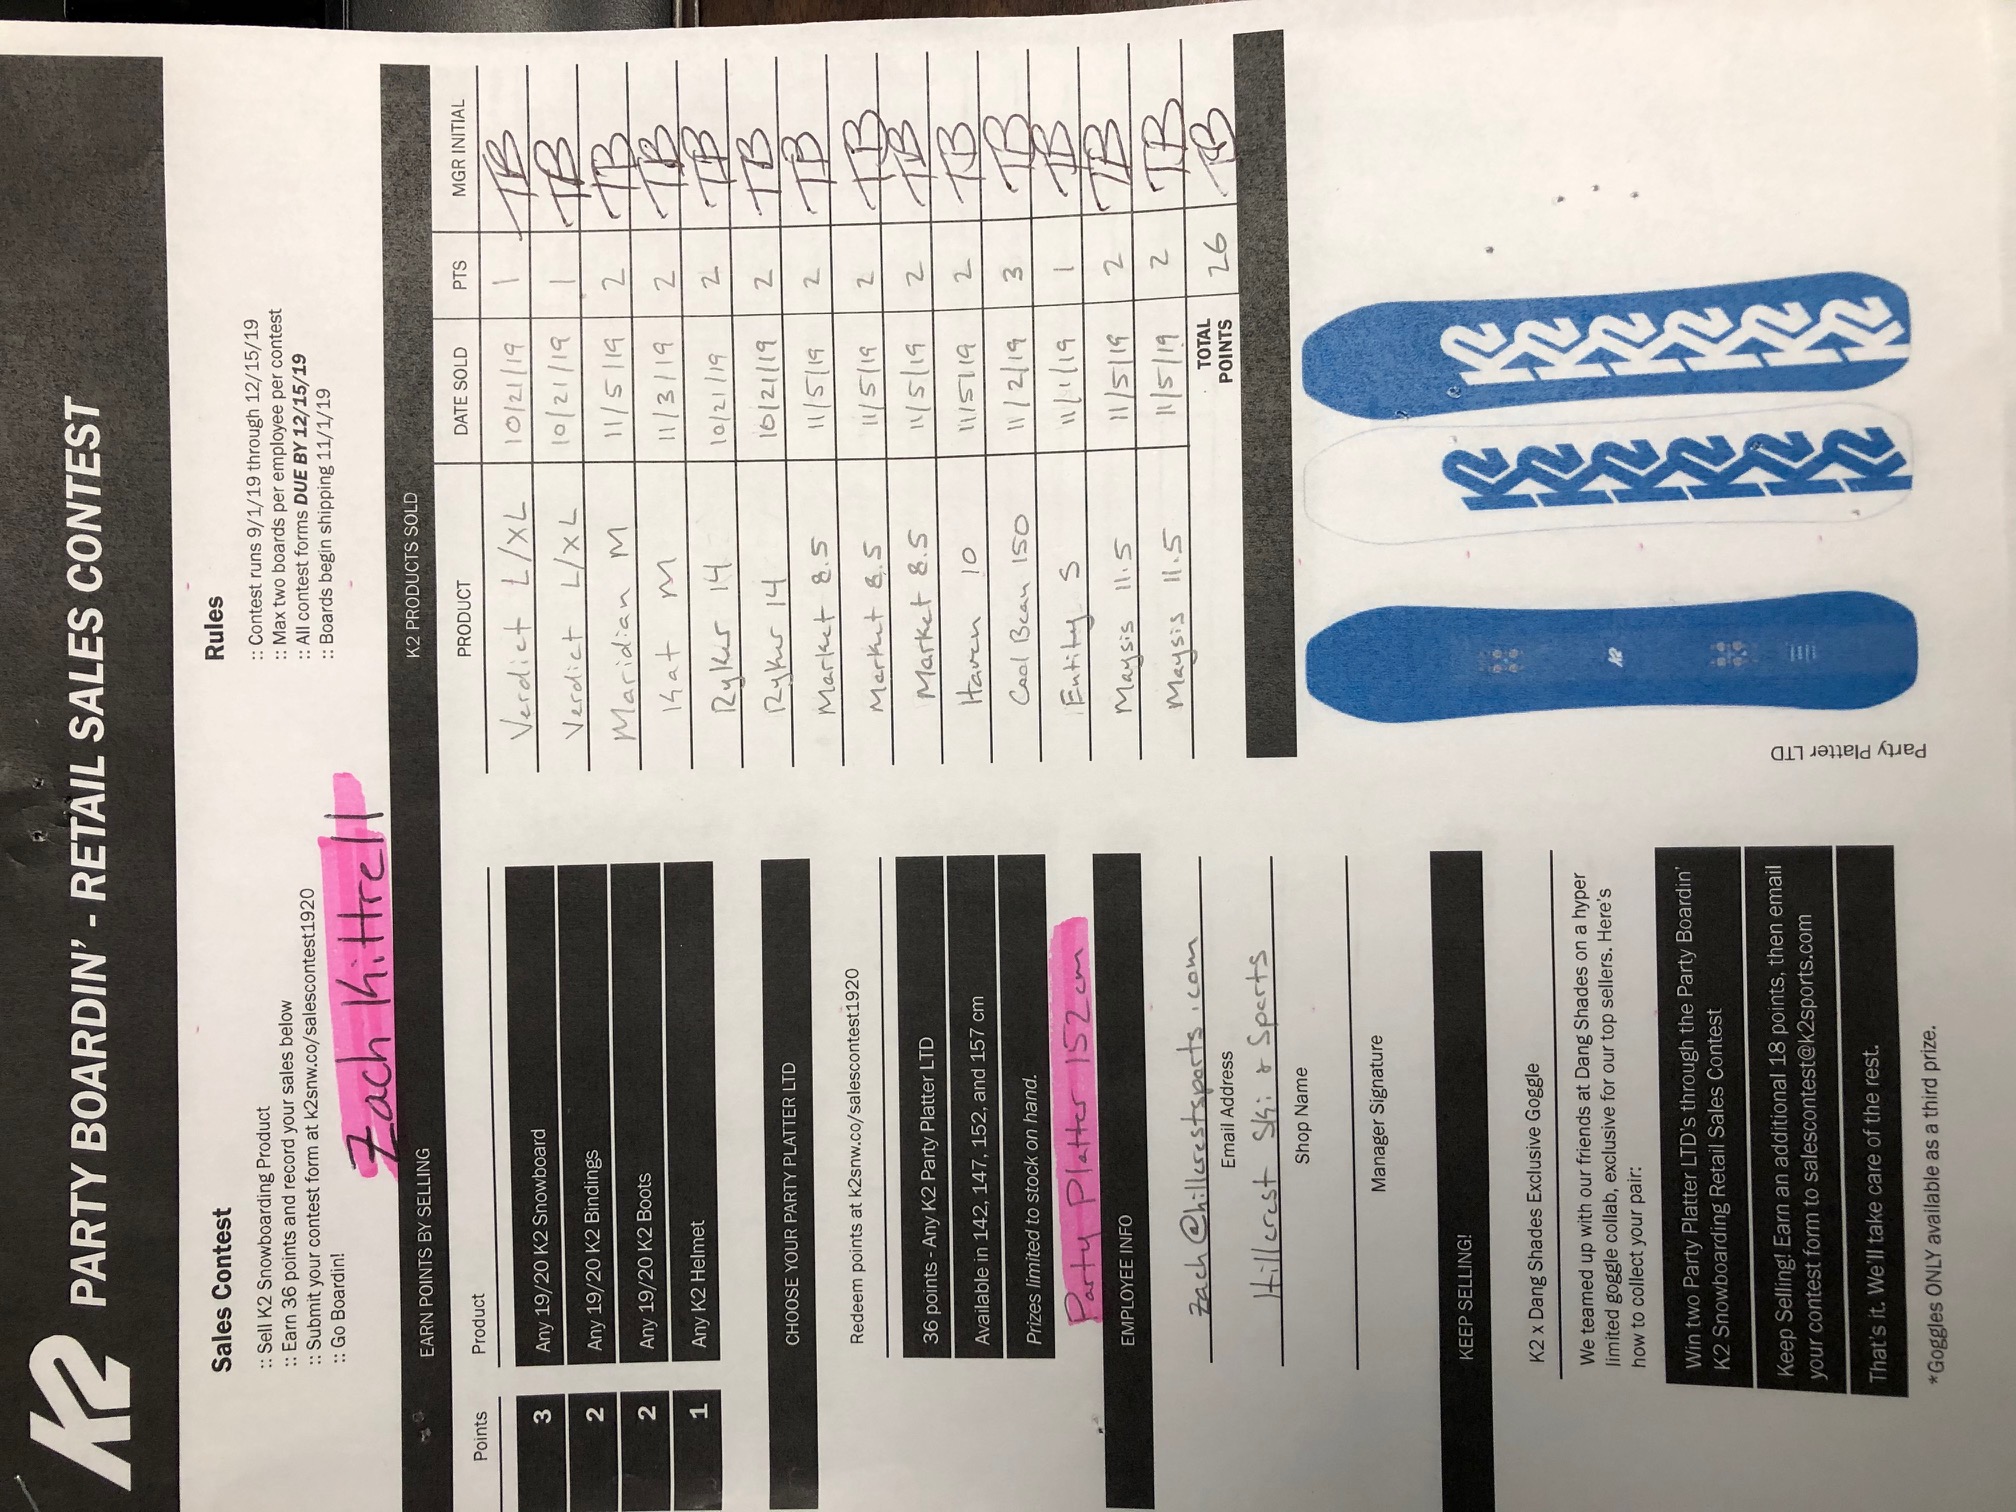 K2 PARTY BOARDIN' - RETAIL SALES CONTEST
Sales Contest
:: Sell K2 Snowboarding Product
:: Earn 36 points and record your sales below
:: Submit your contest form at k2snw.co/salescontest1920
:: Go Boardin!
Rules
:: Contest runs 9/1/19 through 12/15/19
:: Max two boards per employee per contest
:: All contest forms DUE BY 12/15/19
:: Boards begin shipping 11/1/19
Zach Kittrell
EARN POINTS BY SELLING
Points Product
3 Any 19/20 K2 Snowboard
2 Any 19/20 K2 Bindings
2 Any 19/20 K2 Boots
1 Any K2 Helmet
CHOOSE YOUR PARTY PLATTER LTD
Redeem points at k2snw.co/salescontest1920
36 points - Any K2 Party Platter LTD
Available in 142, 147, 152, and 157 cm
Prizes limited to stock on hand.
Party Platter 152cm
EMPLOYEE INFO
zach@hillcrestsports.com
Email Address
Hillcrest Ski & Sports
Shop Name
Manager Signature
KEEP SELLING!
K2 x Dang Shades Exclusive Goggle
We teamed up with our friends at Dang Shades on a hyper
limited goggle collab, exclusive for our top sellers. Here's
how to collect your pair:
Win two Party Platter LTD's through the Party Boardin'
K2 Snowboarding Retail Sales Contest
Keep Selling! Earn an additional 18 points, then email
your contest form to salescontest@k2sports.com
That's it. We'll take care of the rest.
*Goggles ONLY available as a third prize.
K2 PRODUCTS SOLD
PRODUCT DATE SOLD PTS MGR INITIAL
Verdict L/XL 10/21/19 1 TB
Verdict L/XL 10/21/19 1 TB
Maridian M 11/5/19 2 TB
Kat M 11/3/19 2 TB
Ryker 14 10/21/19 2 TB
Ryker 14 10/21/19 2 TB
Market 8.5 11/5/19 2 TB
Market 8.5 11/5/19 2 TB
Market 8.5 11/5/19 2 TB
Haven 10 11/5/19 2 TB
Cool Bean 150 11/2/19 3 TB
Entity S 11/1/19 1 TB
Maysis 11.5 11/5/19 2 TB
Maysis 11.5 11/5/19 2 TB
TOTAL
POINTS 26 TB
Party Platter LTD
K2
K2 K2 K2 K2 K2 K2
K2 K2 K2 K2 K2 K2